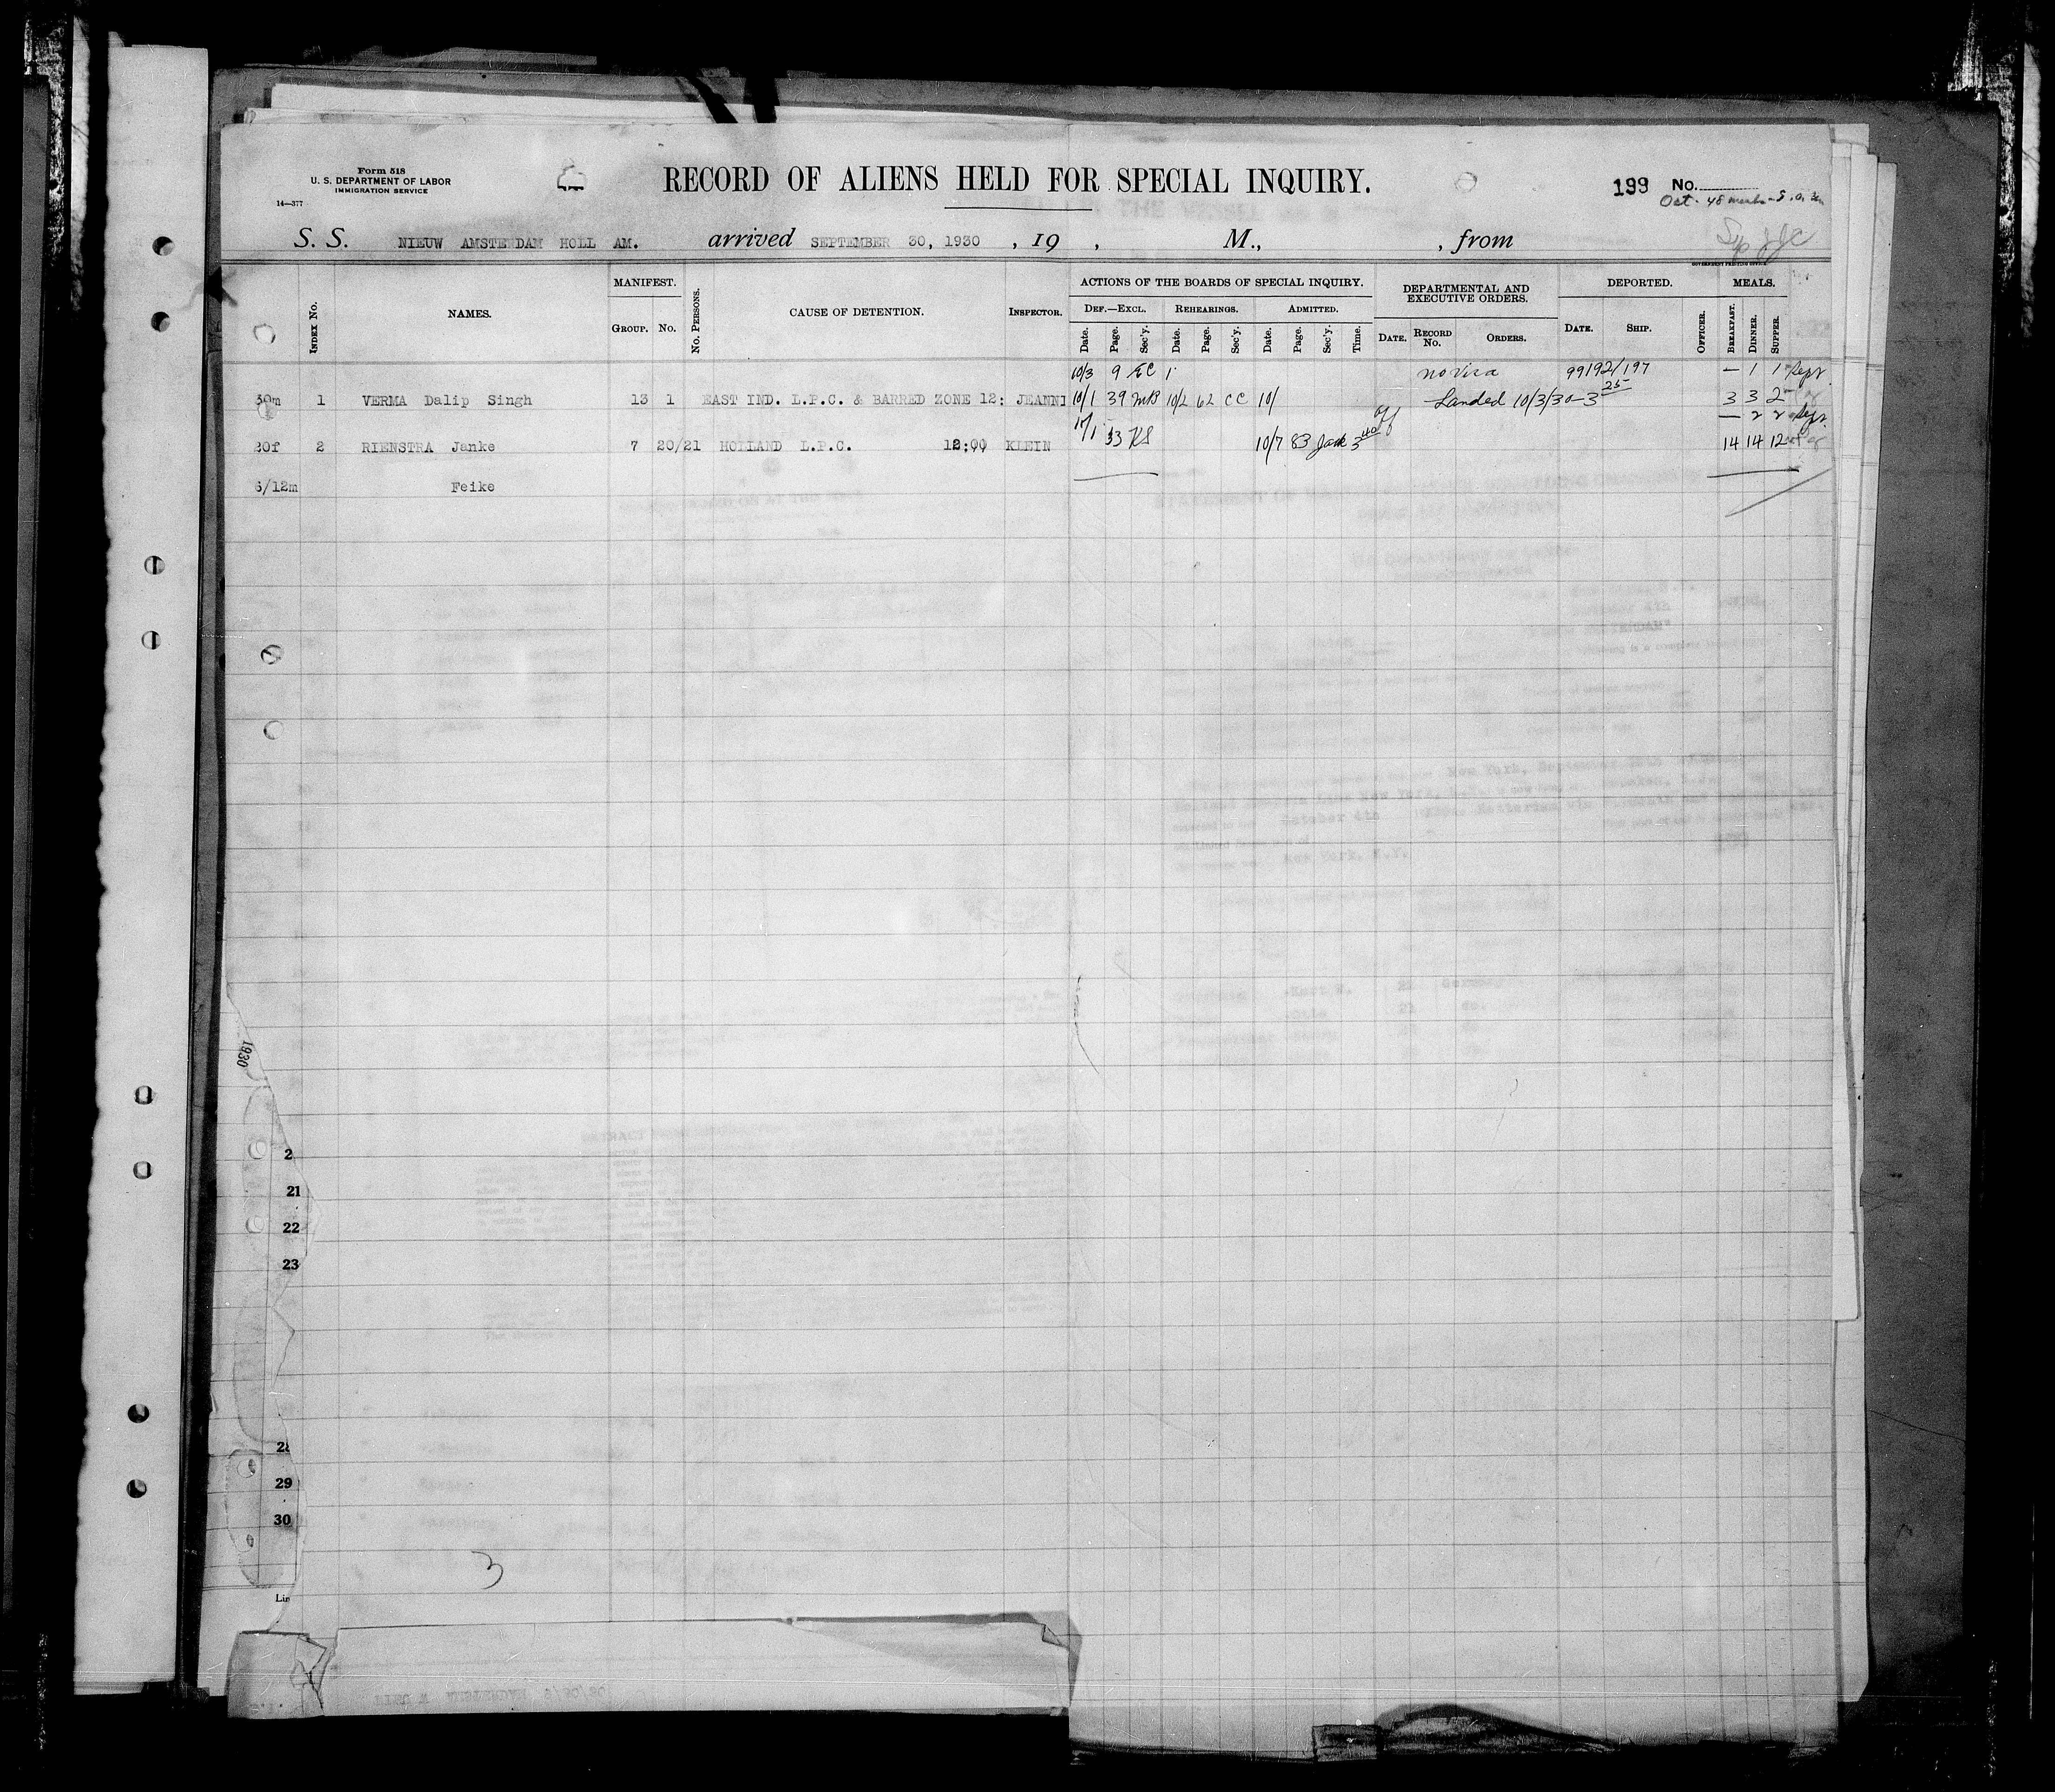 Form 518
U. S. DEPARTMENT OF LABOR
IMMIGRATION SERVICE
14—377
RECORD OF ALIENS HELD FOR SPECIAL INQUIRY.
199 No.
S. S. NIEUW AMSTERDAM HOLL AM. arrived SEPTEMBER 30, 1930 , 19 , M., , from
GOVERNMENT PRINTING OFFICE
INDEX No. NAMES. MANIFEST. GROUP. No. No. PERSONS. CAUSE OF DETENTION. INSPECTOR. ACTIONS OF THE BOARDS OF SPECIAL INQUIRY. DEF.—EXCL. Date. Page. Sec'y. REHEARINGS. Date. Page. Sec'y. ADMITTED. Date. Page. Sec'y. Time. DEPARTMENTAL AND EXECUTIVE ORDERS. DATE. RECORD No. ORDERS. DEPORTED. DATE. SHIP. OFFICER. MEALS. BREAKFAST. DINNER. SUPPER.
10/3 9 EC 1 no visa 99192/197 — 1 1
30m 1 VERMA Dalip Singh 13 1 EAST IND. L.P.C. & BARRED ZONE 12: JEANNI 10/1 39 MB 10/2 62 CC 10/ Landed 10/3/30—3 25 3 3 2
— 2 2
20f 2 RIENSTRA Janke 7 20/21 HOLLAND L.P.C. 12:00 KLEIN 10/1 33 KS 10/7 83 3 40 14 14 12
6/12m Feike
1930
2
21
22
23
28
29
30
3
Lin